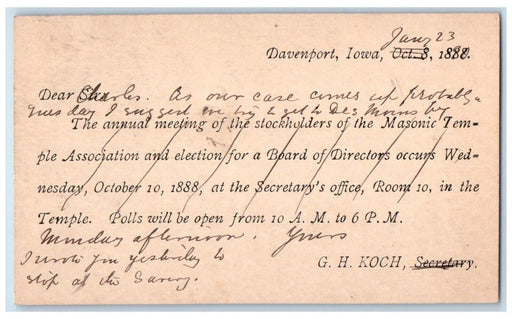 Jany 23
Davenport, Iowa, Oct. 8, 1888.
Dear Charles. As our case comes up probably
Tuesday I suggest we try to get to Des Moines by
The annual meeting of the stockholders of the Masonic Tem-
ple Association and election for a Board of Directors occurs Wed-
nesday, October 10, 1888, at the Secretary's office, Room 10, in the
Temple. Polls will be open from 10 A. M. to 6 P. M.
Monday afternoon. Yours
I wrote you yesterday to
G. H. KOCH, Secretary.
stop at the Savery.